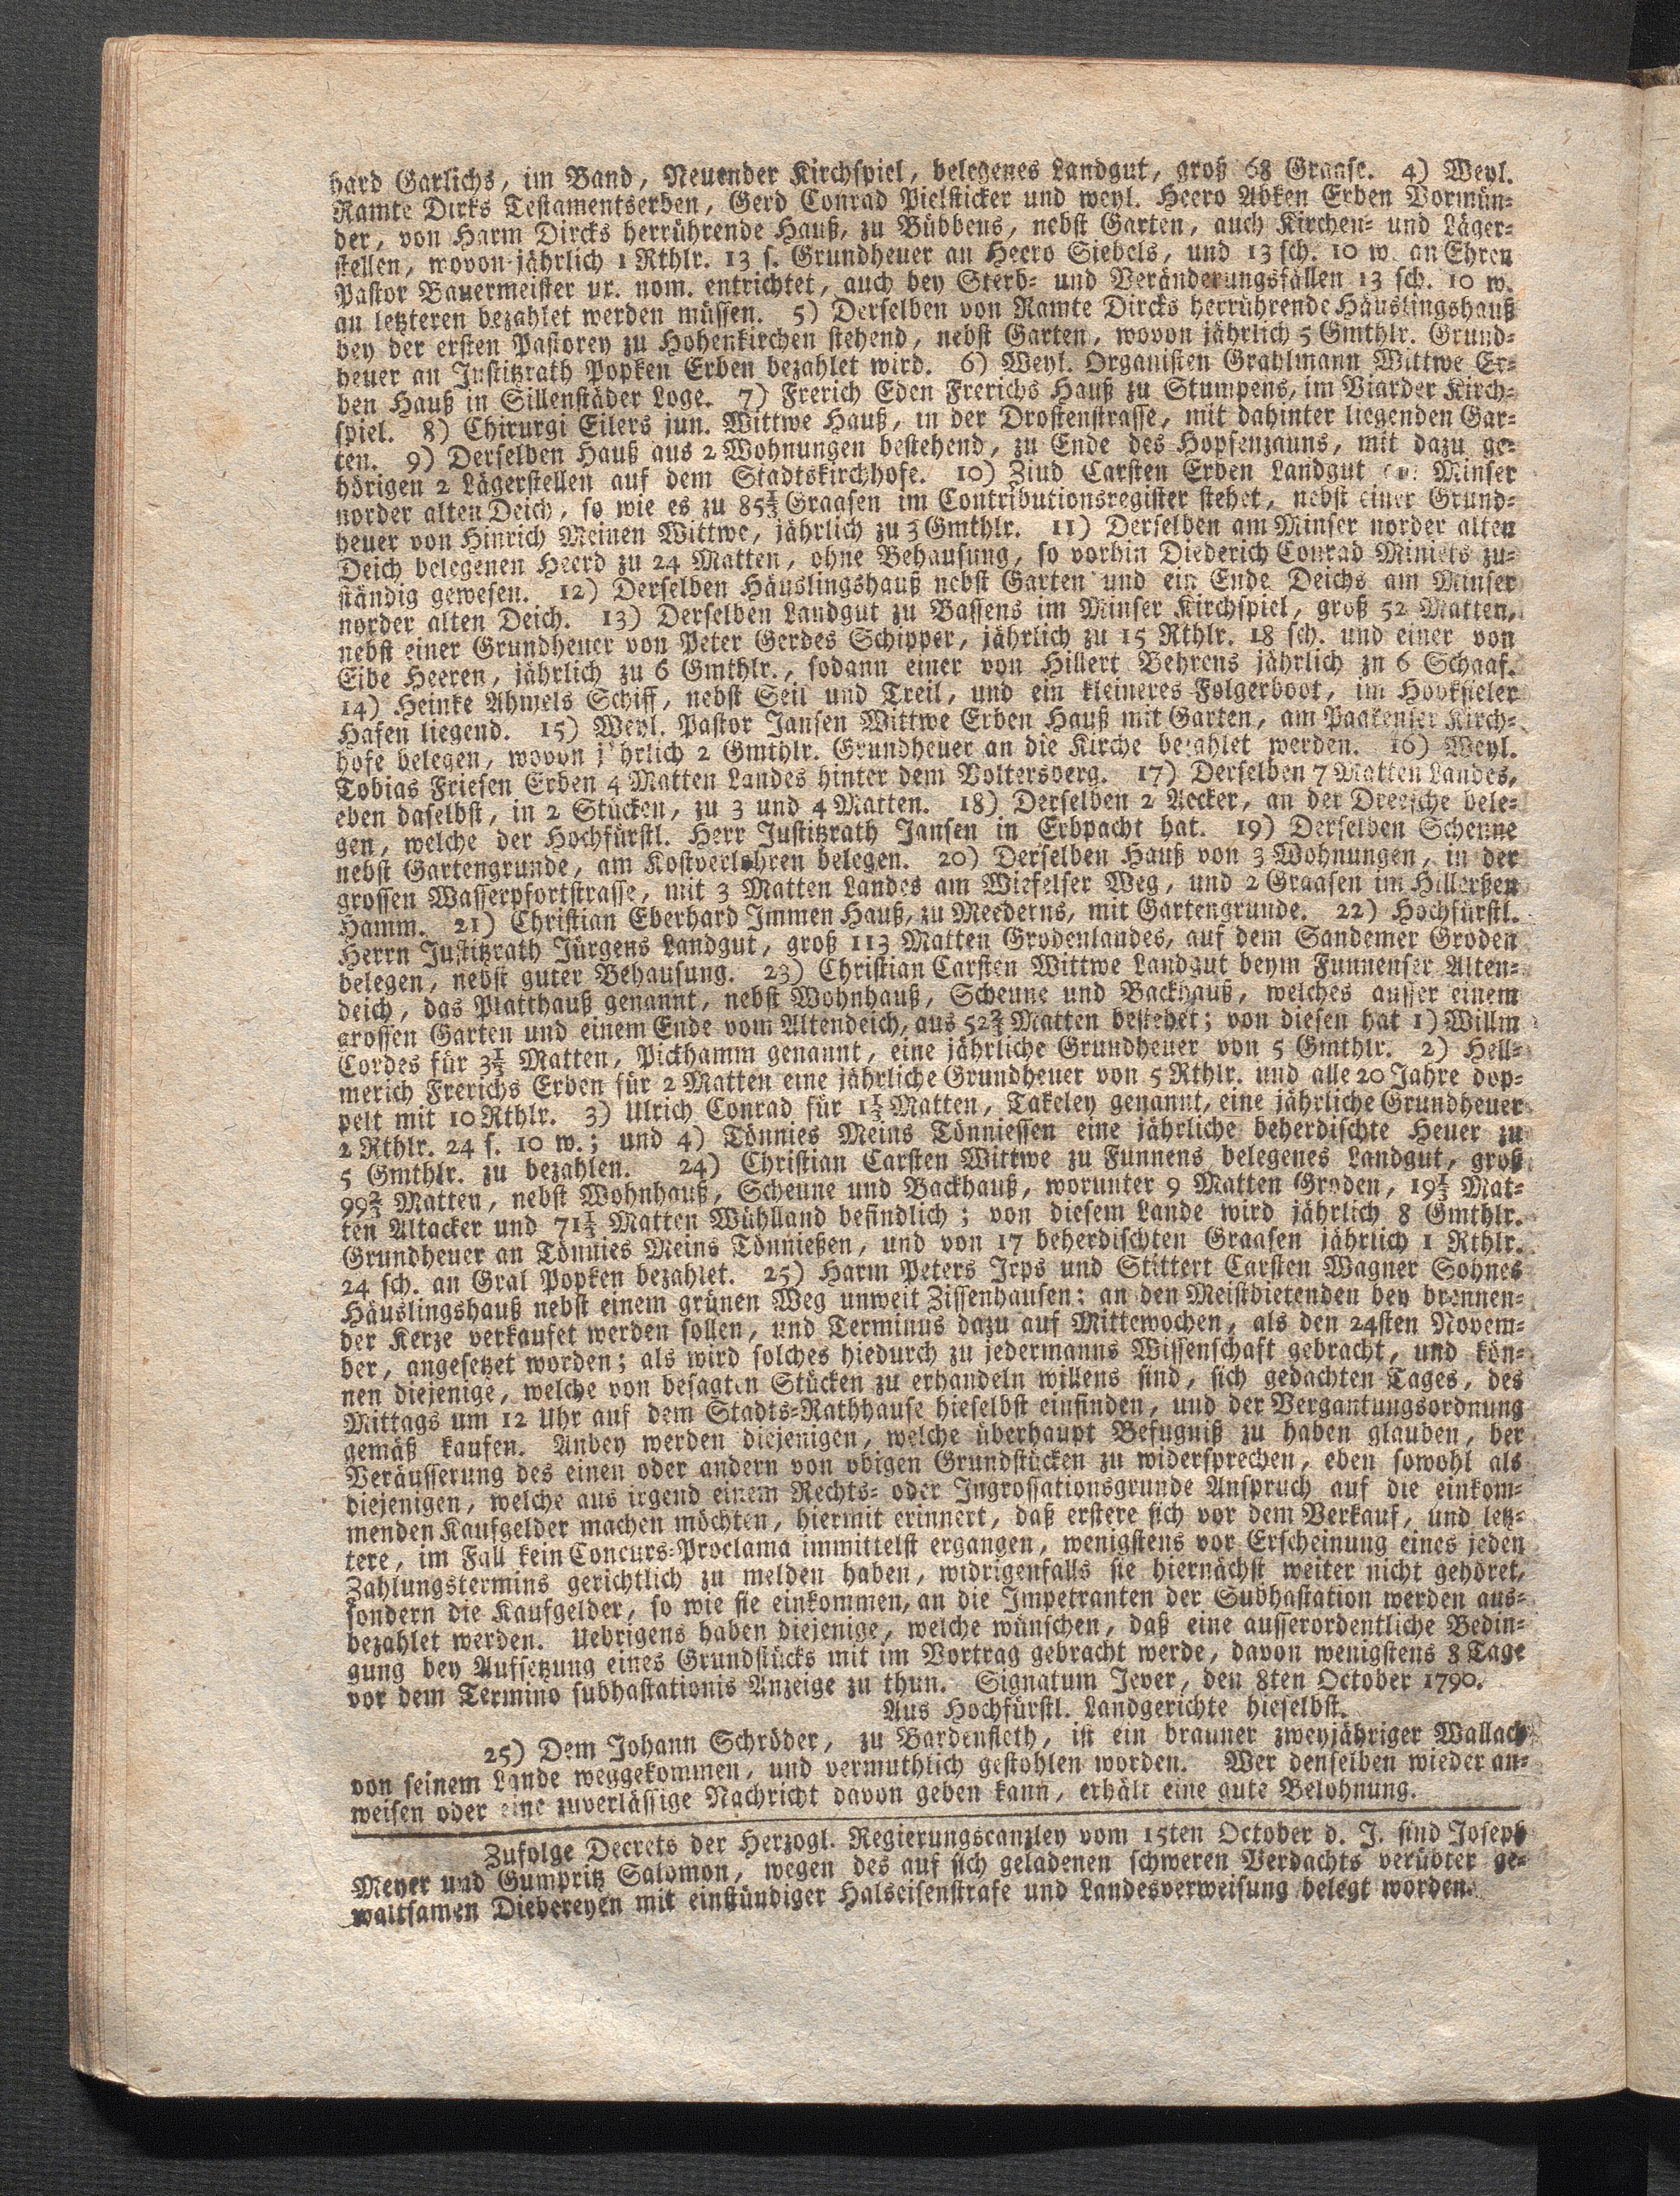 hard Garlichs, im Band, Neuender Kirchspiel, belegenes Landgut, groß 68 Graase. 4) Weyl.
Ramte Dirks Testamentserben, Gerd Conrad Pielsticker und weyl. Heero Abken Erben Vormün-
der, von Harm Dircks herrührende Hauß, zu Bübbens, nebst Garten, auch Kirchen- und Läger-
stellen, wovon jährlich 1 Rthlr. 13 s. Grundheuer an Heero Siebels, und 13 sch. 10 w. an Ehren
Pastor Bauermeister ur. nom. entrichtet, auch bey Sterb- und Veränderungsfällen 13 sch. 10 w.
an letzteren bezahlet werden müssen. 5) Derselben von Ramte Dircks herrührende Häuslingshauß
bey der ersten Pastorey zu Hohenkirchen stehend, nebst Garten, wovon jährlich 5 Gmthlr. Grund-
heuer an Justitzrath Popken Erben bezahlet wird. 6) Weyl. Organisten Grahlmann Wittwe Er-
ben Hauß in Sillenstäder Loge. 7) Frerich Eden Frerichs Hauß zu Stumpens, im Wiarder Kirch-
spiel. 8) Chirurgi Eilers jun. Wittwe Hauß, in der Drostenstrasse, mit dahinter liegenden Gar-
ten. 9) Derselben Hauß aus 2 Wohnungen bestehend, zu Ende des Hopfenzauns, mit dazu ge-
hörigen 2 Lägerstellen auf dem Stadtskirchhofe. 10) Ziud Carsten Erben Landgut Minser
norder alten Deich, so wie es zu 85½ Graasen im Contributionsregister stehet, nebst einer Grund-
heuer von Hinrich Meinen Wittwe, jährlich zu 3 Gmthlr. 11) Derselben am Minser norder alten
Deich belegenen Heerd zu 24 Matten, ohne Behausung, so vorhin Diederich Conrad Miniets zu-
ständig gewesen. 12) Derselben Häuslingshauß nebst Garten und ein Ende Deichs am Minser
norder alten Deich. 13) Derselben Landgut zu Bassens im Minser Kirchspiel, groß 52 Matten,
nebst einer Grundheuer von Peter Gerdes Schipper, jährlich zu 15 Rthlr. 18 sch. und einer von
Eibe Heeren, jährlich zu 6 Gmthlr., sodann einer von Hillert Behrens jährlich zn 6 Schaaf.
14) Heinke Ahmels Schiff, nebst Seil und Treil, und ein kleineres Folgerboot, im Hooksieler
Hafen liegend. 15) Weyl. Pastor Jansen Wittwe Erben Hauß mit Garten, am Paakenser Kirch-
hofe belegen, wovon jährlich 2 Gmthlr. Grundheuer an die Kirche bezahlet werden. 16) Weyl.
Tobias Friesen Erben 4 Matten Landes hinter dem Voltersberg. 17) Derselben 7 Matten Landes,
eben daselbst, in 2 Stücken, zu 3 und 4 Matten. 18) Derselben 2 Aecker, an der Dreesche bele-
gen, welche der Hochfürstl. Herr Justitzrath Jansen in Erbpacht hat. 19) Derselben Scheune
nebst Gartengrunde, am Kostverlohren belegen. 20) Derselben Hauß von 3 Wohnungen, in der
grossen Wasserpfortstrasse, mit 3 Matten Landes am Wiefelser Weg, und 2 Graasen im Hillerßen
Hamm. 21) Christian Eberhard Immen Hauß, zu Meederns, mit Gartengrunde. 22) Hochfürstl.
Herrn Justitzrath Jürgens Landgut, groß 113 Matten Grodenlandes, auf dem Sandemer Groden
belegen, nebst guter Behausung. 23) Christian Carsten Wittwe Landgut beym Funnenser Alten-
deich, das Platthauß genannt, nebst Wohnhauß, Scheune und Backhauß, welches ausser einem
grossen Garten und einem Ende vom Altendeich, aus 52⅔ Matten bestehet; von diesen hat 1) Willm
Cordes für 3½ Matten, Pickhamm genannt, eine jährliche Grundheuer von 5 Gmthlr. 2) Hell-
merich Frerichs Erben für 2 Matten eine jährliche Grundheuer von 5 Rthlr. und alle 20 Jahre dop-
pelt mit 10 Rthlr. 3) Ulrich Conrad für 1½ Matten, Takeley genannt, eine jährliche Grundheuer
2 Rthlr. 24 s. 10 w.; und 4) Tönnies Meins Tönniessen eine jährliche beherdischte Heuer zu
5 Gmthlr. zu bezahlen. 24) Christian Carsten Wittwe zu Funnens belegenes Landgut, groß
99⅔ Matten, nebst Wohnhauß, Scheune und Backhauß, worunter 9 Matten Groden, 19⅓ Mat-
ten Altacker und 71⅓ Matten Wühlland befindlich; von diesem Lande wird jährlich 8 Gmthlr.
Grundheuer an Tönnies Meins Tönnießen, und von 17 beherdischten Graasen jährlich 1 Rthlr.
24 sch. an Gral Popken bezahlet. 25) Harm Peters Irps und Stittert Carsten Wagner Sohnes
Häuslingshauß nebst einem grünen Weg unweit Zissenhausen: an den Meistbietenden bey brennen-
der Kerze verkaufet werden sollen, und Terminus dazu auf Mittewochen, als den 24sten Novem-
ber, angesetzet worden; als wird solches hiedurch zu jedermanns Wissenschaft gebracht, und kön-
nen diejenige, welche von besagten Stücken zu erhandeln willens sind, sich gedachten Tages, des
Mittags um 12 Uhr auf dem Stadts-Rathhause hieselbst einfinden, und der Vergantungsordnung
gemäß kaufen. Anbey werden diejenigen, welche überhaupt Befugniß zu haben glauben, der
Veräusserung des einen oder andern von obigen Grundstücken zu widersprechen, eben sowohl als
diejenigen, welche aus irgend einem Rechts- oder Ingrossationsgrunde Anspruch auf die einkom-
menden Kaufgelder machen möchten, hiermit erinnert, daß erstere sich vor dem Verkauf, und letz-
tere, im Fall kein Concurs-Proclama immittelst ergangen, wenigstens vor Erscheinung eines jeden
Zahlungstermins gerichtlich zu melden haben, widrigenfalls sie hiernächst weiter nicht gehöret,
sondern die Kaufgelder, so wie sie einkommen, an die Impetranten der Subhastation werden aus-
bezahlet werden. Uebrigens haben diejenige, welche wünschen, daß eine ausserordentliche Bedin-
gung bey Aufsetzung eines Grundstücks mit im Vortrag gebracht werde, davon wenigstens 8 Tage
vor dem Termino subhastationis Anzeige zu thun. Signatum Jever, den 8ten October 1790.
Aus Hochfürstl. Landgerichte hieselbst.
25) Dem Johann Schröder, zu Bardenfleth, ist ein brauner zweyjähriger Wallach
von seinem Lande weggekommen, und vermuthlich gestohlen worden. Wer denselben wieder an-
weisen oder eine zuverlässige Nachricht davon geben kann, erhält eine gute Belohnung.
Zufolge Decrets der Herzogl. Regierungscanzley vom 15ten October d. J. sind Joseph
Meyer und Gumpritz Salomon, wegen des auf sich geladenen schweren Verdachts verübter ge-
waltsamen Diebereyen mit einstündiger Halseisenstrafe und Landesverweisung belegt worden.